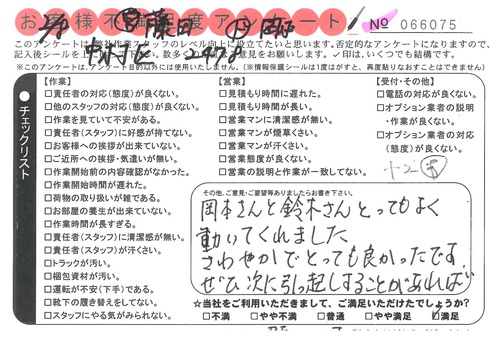 お客様不満足度アンケート
No 066075
このアンケートは弊社作業スタッフのレベル向上に役立てたいと思います。否定的なアンケートになりますので、
記入後シールを
意見をお願いします。✓印は、いくつでも結構です。
※このアンケートは、アンケート目的以外には使用いたしません。(※情報保護シールは1度はがすと、再度貼りなおすことはできません
チェックリスト
【作業】
□責任者の対応(態度)が良くない。
□他のスタッフの対応(態度)が良くない。
□作業を見ていて不安がある。
□責任者(スタッフ)に好感が持てない。
□お客様への挨拶が出来ていない。
□ご近所への挨拶・気遣いが無い。
□作業開始前の内容確認がなかった。
□作業開始時間が遅れた。
□荷物の取り扱いが雑である。
□お部屋の養生が出来ていない。
□作業時間が長すぎる。
□責任者(スタッフ)に清潔感が無い。
□責任者(スタッフ)が汗くさい。
□トラックが汚い。
□梱包資材が汚い。
□運転が不安(下手)である。
□靴下の履き替えをしてない。
□スタッフにやる気がみられない。
【営業】
□見積もり時間に遅れた。
□見積もり時間が長い。
□営業マンに清潔感が無い。
□営業マンが煙草くさい。
□営業マンが汗くさい。
□営業態度が良くない。
□営業の説明と作業が一致してない。
【受付・その他】
□電話の対応が良くない。
□オプション業者の説明
・作業が良くない。
□オプション業者の対応
(態度)が良くない。
その他、ご意見・ご要望等ありましたらお書き下さい。
岡本さんと鈴木さんとってもよく
動いてくれました
さわやかでとっても良かったです
ぜひ次に引っ起しすることがあれば
☆当社をご利用いただきまして、ご満足いただけたでしょうか?
□不満 □やや不満 □普通 □やや満足 ☑満足